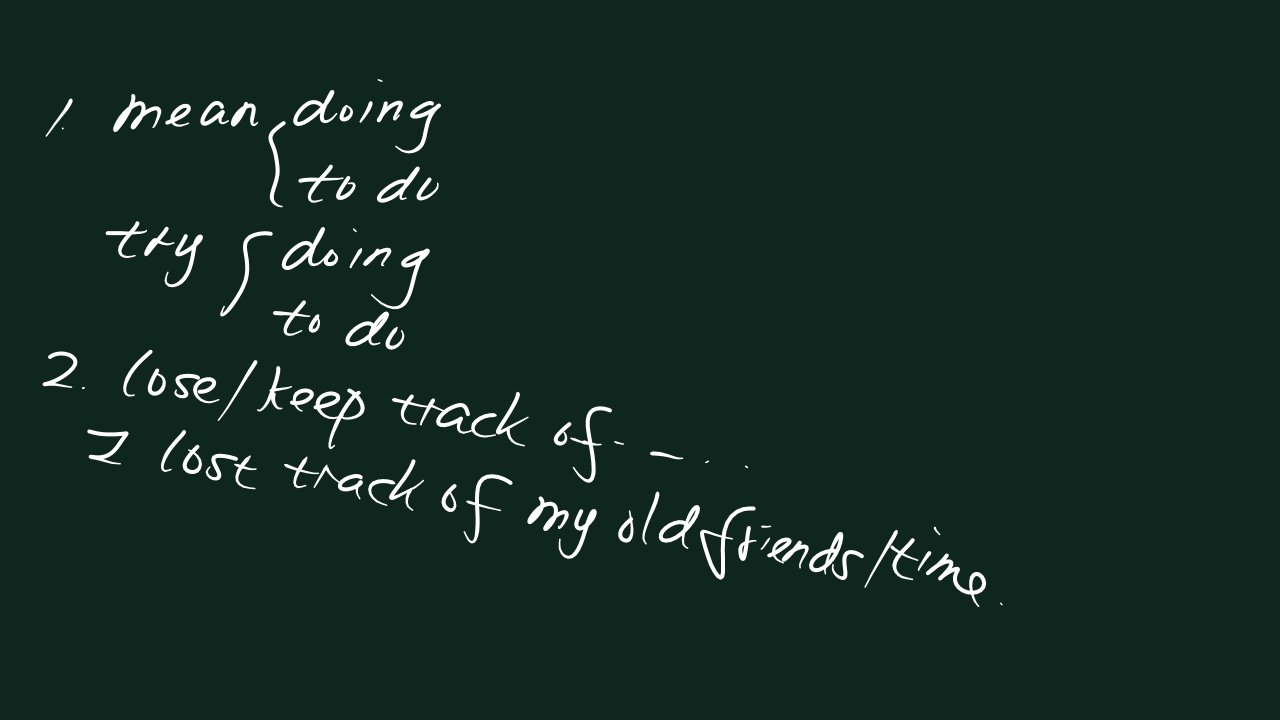 1. mean { doing
to do
try { doing
to do
2. lose/keep track of - - ...
I lost track of my old friends/time.